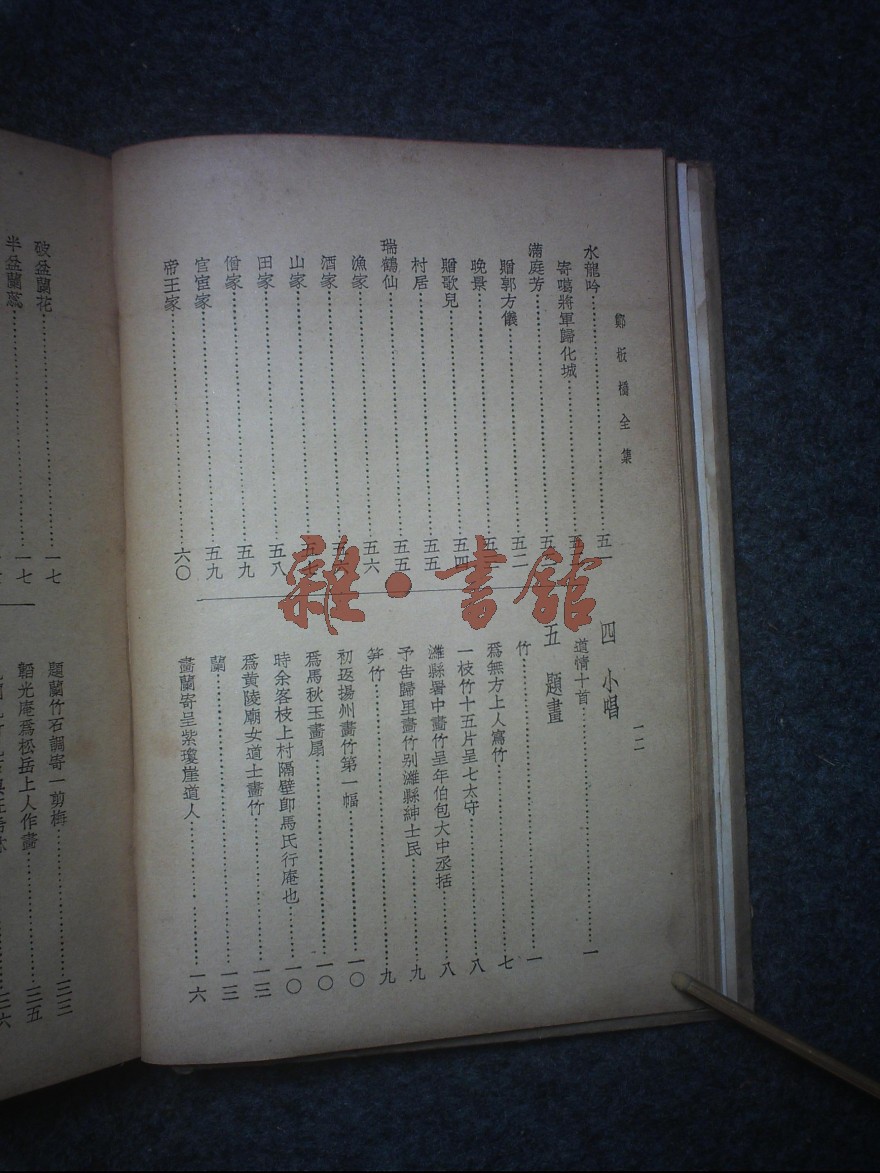 鄭板橋全集
一二
水龍吟……五一
寄噶將軍歸化城……五
滿庭芳……五
贈郭方儀……五二
晚景……五
贈歌兒……五四
村居……五五
瑞鶴仙……五五
漁家……五六
酒家……五六
山家……五七
田家……五八
僧家……五九
官宦家……五九
帝王家……六〇
四 小唱
道情十首……一
五 題畫
竹……一
爲無方上人寫竹……七
一枝竹十五片呈七太守……八
濰縣署中畫竹呈年伯包大中丞括……八
予告歸里畫竹别濰縣紳士民……九
笋竹……九
初返揚州畫竹第一幅……一〇
爲馬秋玉畫扇……一〇
時余客枝上村隔壁卽馬氏行庵也……一〇
爲黄陵廟女道士畫竹……一三
蘭……一三
畫蘭寄呈紫瓊崖道人……一六
破盆蘭花……一七
半盆蘭蕊……一七
題蘭竹石調寄一剪梅……三三
韜光庵爲松岳上人作畫……三五
三六
雜·書館